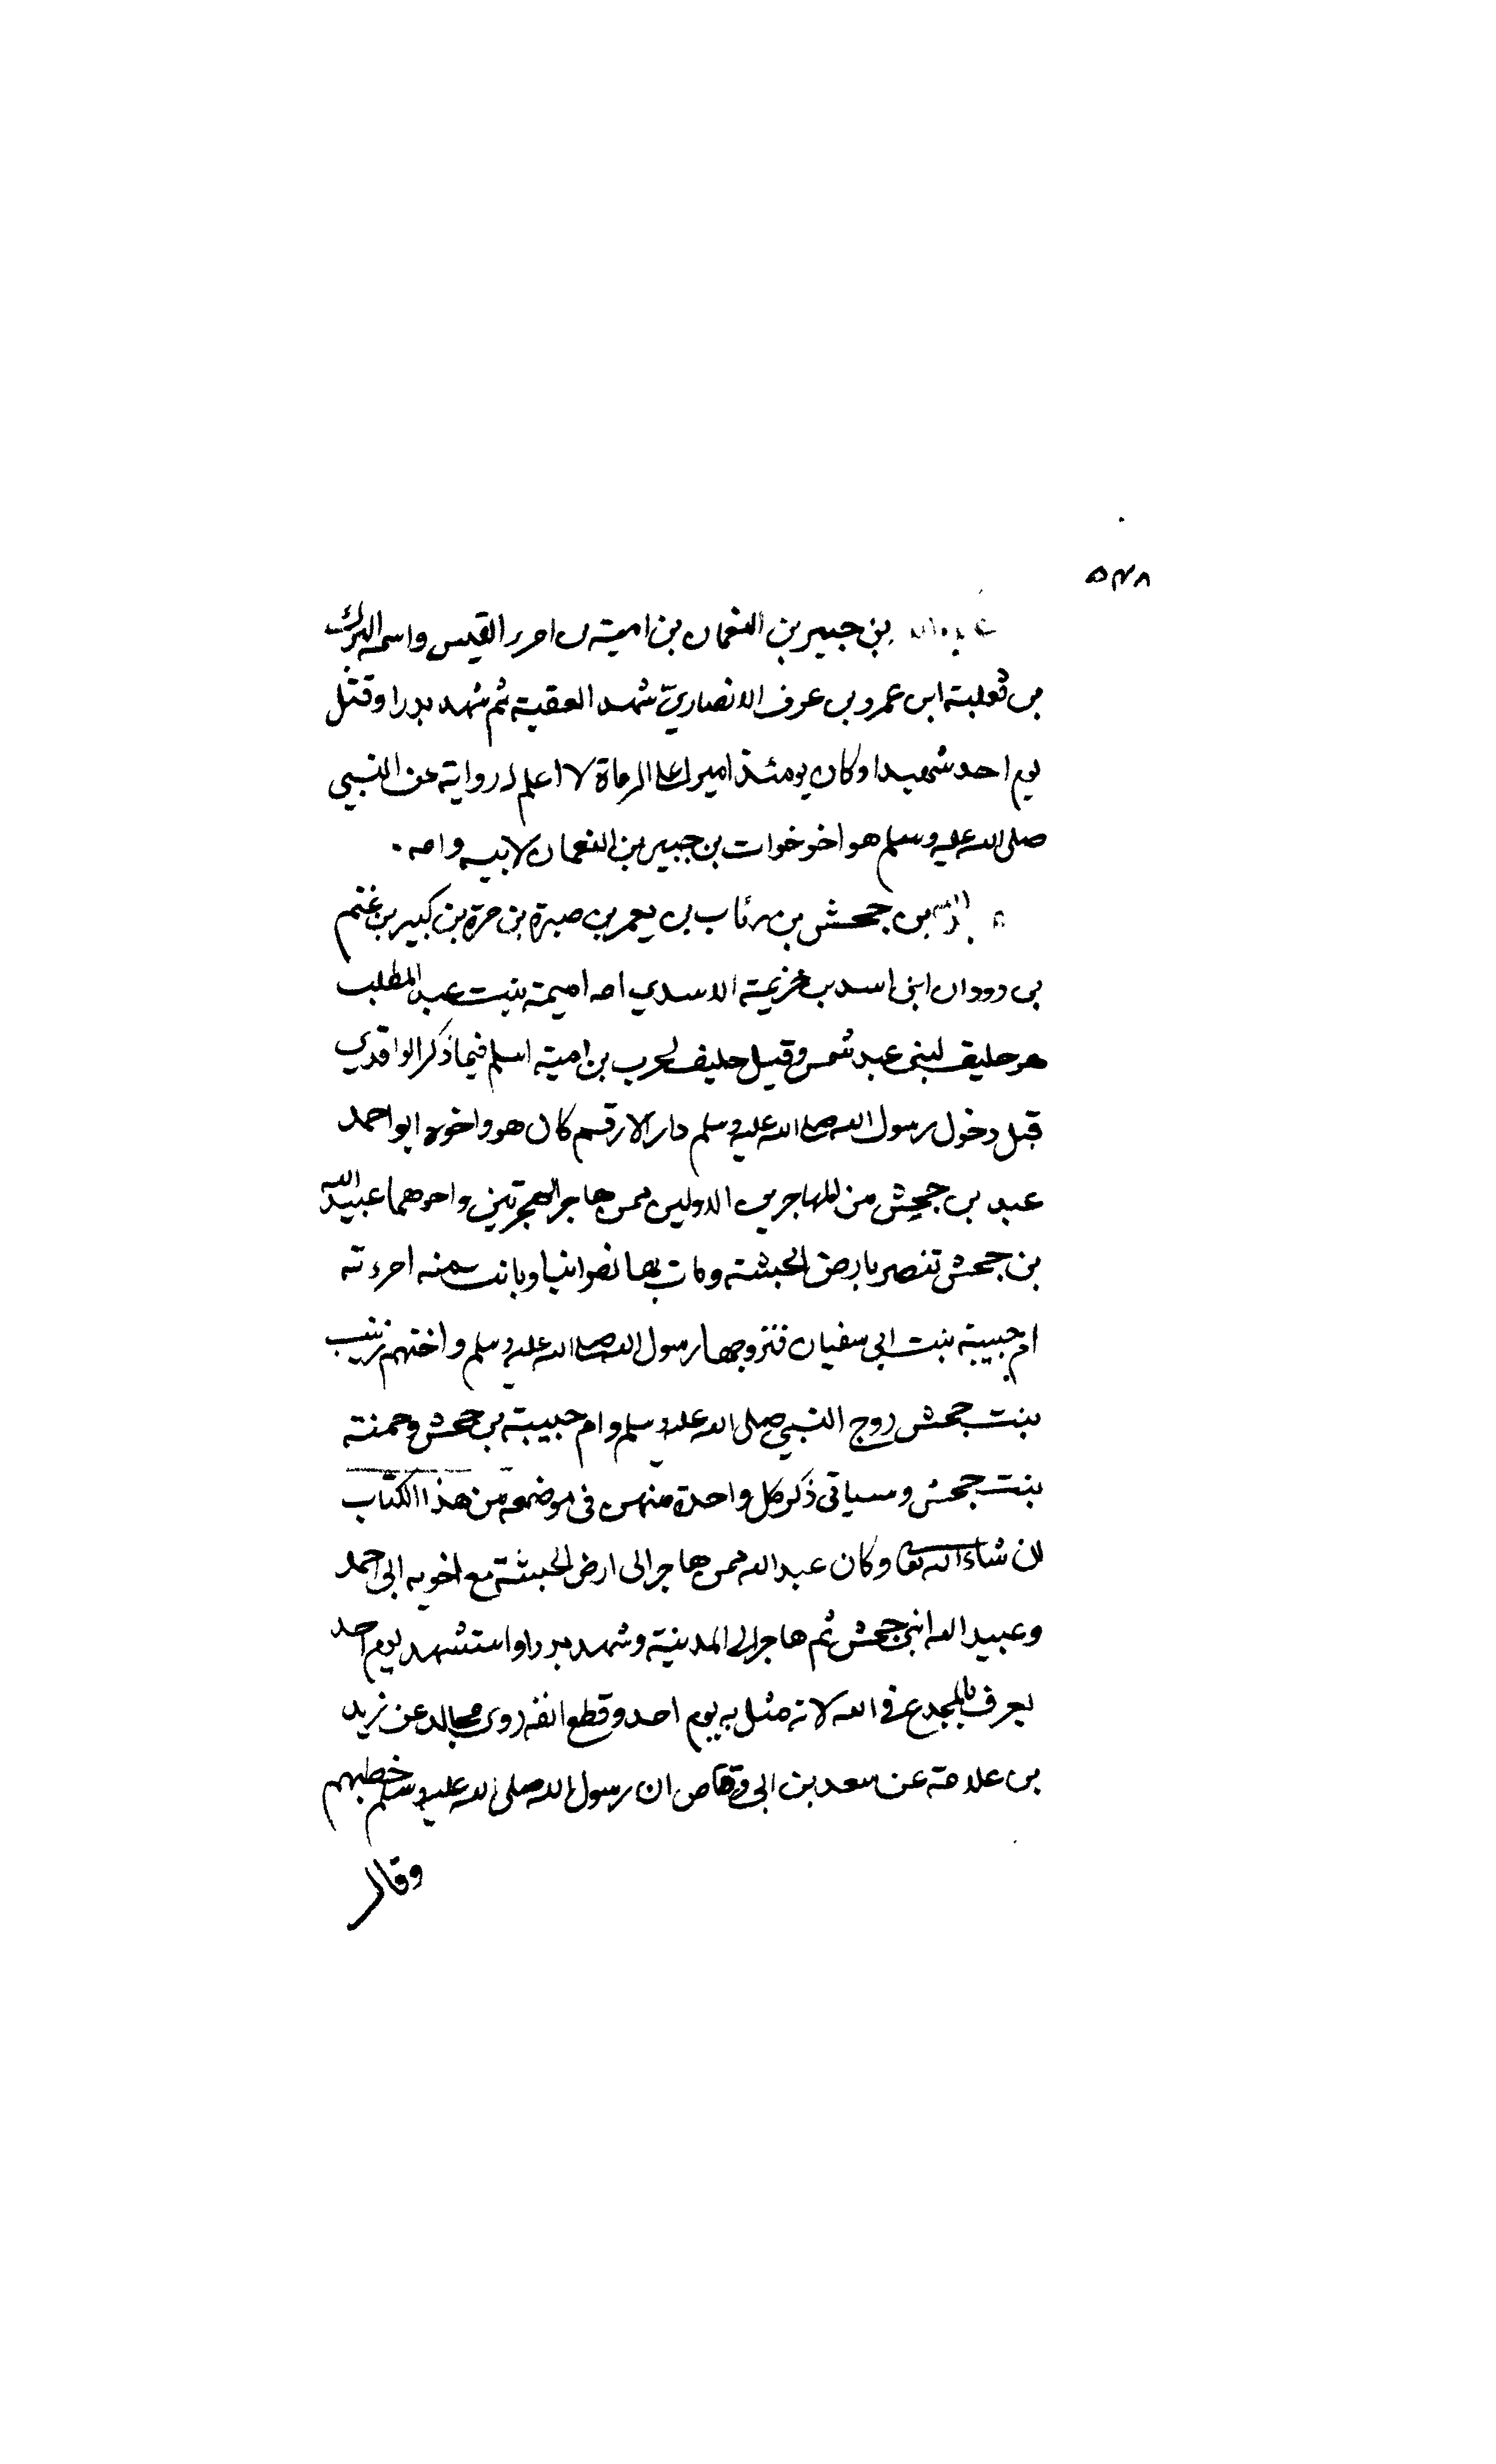 ٥٣٨
بن جبير بن النعمان بن امية بن امرء القيس واسمه البرك
بن ثعلبة ابن عمرو بن عوف الانصاريّ شهد العقبة ثم شهد بدرا وقتل
يوم احد شهيدا وكان يومئذ اميرا على الرماة لا اعلم له رواية عن النبي
صلى الله عليه وسلم هو اخو خوات بن جبير بن النعمان لابيه وامه ٠
بن جحش بن رئاب بن يعمر بن صبرة بن مرة بن كبير بن غنم
بن دودان ابن اسد بن خزيمة الاسدي امه اميمة بنت عبد المطلب
هو حليف لبنى عبد شمس وقيل حليف لحرب بن امية اسلم فيما ذكر الواقدي
قبل دخول رسول الله صلى الله عليه وسلم دار الارقم كان هو واخوه ابو احمد
عبد بن جحش من المهاجرين الاولين ممن هاجر الهجرتين واخوهما عبيد الله
بن جحش تنصر بارض الحبشة ومات بها نصرانيا وبانت منه امرءته
ام حبيبة بنت ابي سفيان فتزوجها رسول الله صلى الله عليه وسلم واختهم زينب
بنت جحش زوج النبي صلى الله عليه وسلم وام حبيبة بن جحش وحمنة
بنت جحش وسياتى ذكر كل واحدة منهن فى موضعه من هذا الكتاب
ان شاء الله تعا وكان عبد الله ممن هاجر الى ارض الحبشة مع اخويه ابى احمد
وعبيد الله ابنى جحش ثم هاجر الى المدينة وشهد بدرا واستشهد يوم احد
يعرف بالمجدع فى الله لانه مثل به يوم احد وقطع انفه روى مجالد عن زيد
بن علاقة عن سعد بن ابى وقاص ان رسول الله صلى الله عليه وسلم خطبهم
وقال